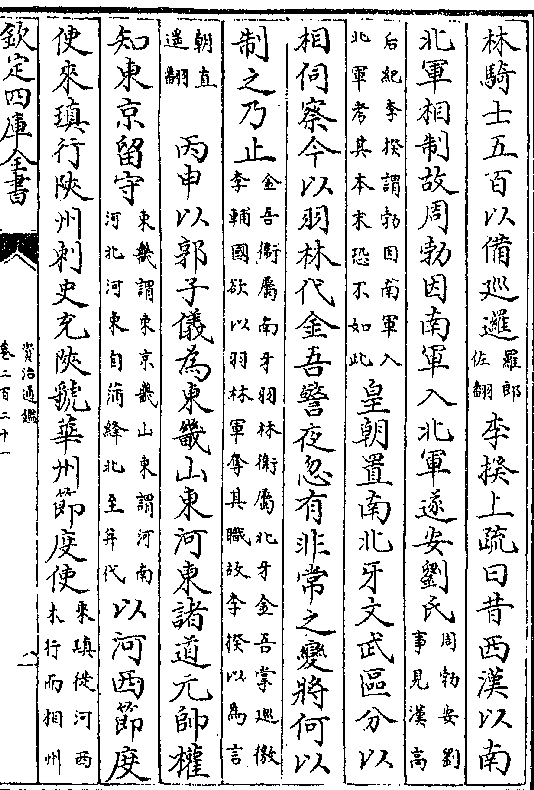 林騎士五百以備巡邏邏郎佐翻李揆上疏曰昔西漢以南
北軍相制故周勃因南軍入北軍遂安劉氏周勃安劉事見漢高
后紀李揆謂勃因南軍入北軍考其本末恐不如此皇朝置南北牙文武區分以
相伺察今以羽林代金吾警夜忽有非常之變將何以
制之乃止金吾衛屬南牙羽林衛屬北牙金吾掌巡徼李輔國欲以羽林軍奪其職故李揆以為言
朝直遥翻丙申以郭子儀為東畿山東河東諸道元帥權
知東京留守東畿謂東京畿山東謂河南河北河東自蒲絳北至并代以河西節度
使來瑱行陜州刺史充陜虢華州節度使來瑱徙河西未行而相州
欽定四庫全書
資治通鑑
卷二百二十一
八